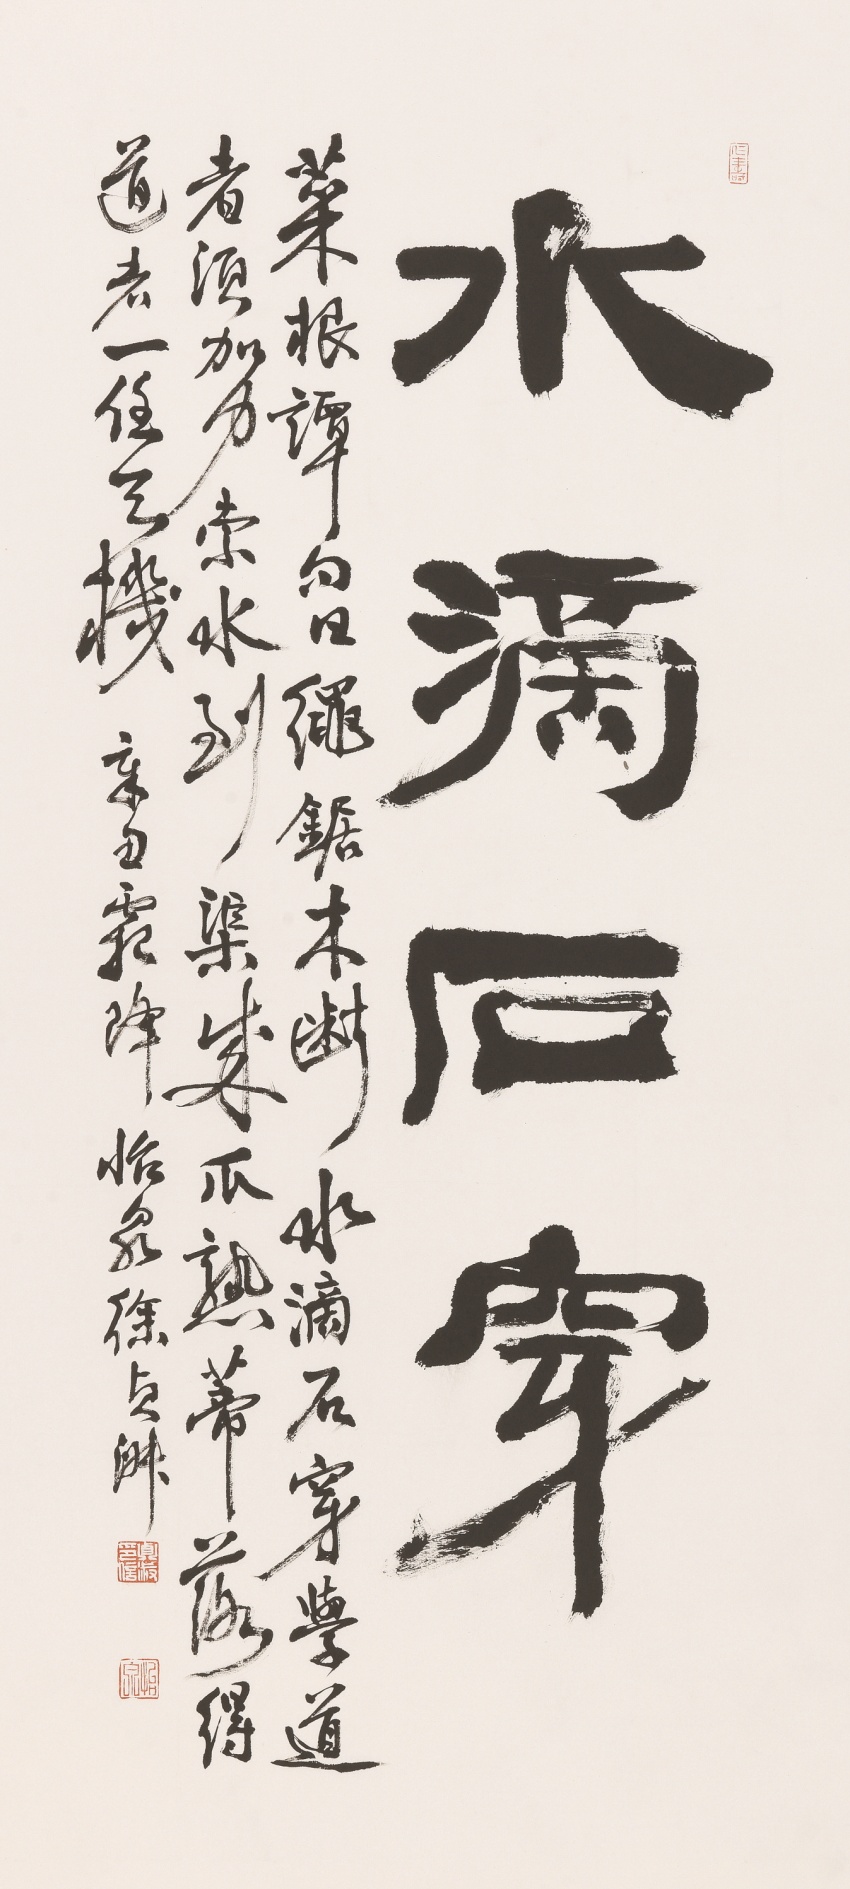 水滴石穿
菜根譚句曰繩鋸木斷水滴石穿學道
者須加力索水到渠成瓜熟蒂落得
道者一任天機 辛丑霜降 怡泉徐貞